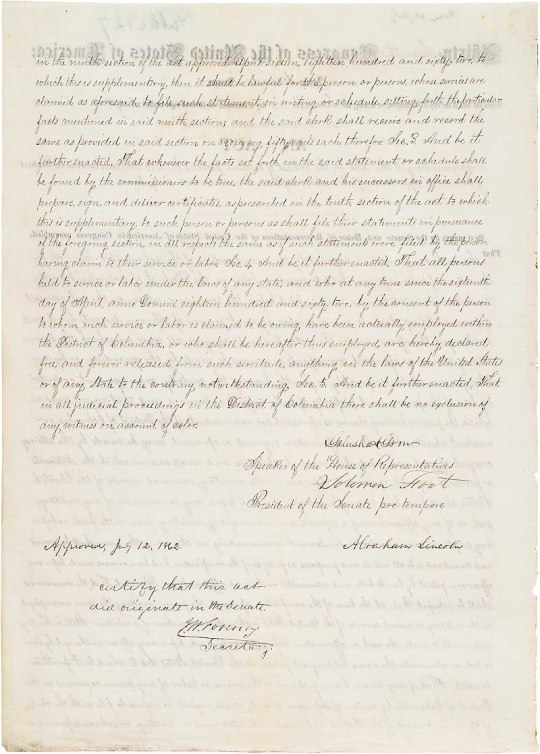 in the ninth section of the act approved April sixteen, eighteen hundred and sixty two, to
which this is supplementary, then it shall be lawful for the person or persons, whose services are
claimed as aforesaid, to file such statement, in writing or schedule, setting forth the particular
facts mentioned in said ninth section; and the said clerk shall receive and record the
same as provided in said section on receiving fifty cents each therefor Sec. 3. And be it
further enacted, That whenever the facts set forth in the said statement or schedule shall
be found by the commissioners to be true, the said clerk and his successors in office shall
prepare, sign, and deliver certificates, as presented in the tenth section of the act to which
this is supplementary, to such person or persons as shall file their statements in pursuance
of the foregoing section, in all respects the same as if such statements were filed by the person
having claim to their service or labor Sec. 4 And be it further enacted, That all persons
held to service or labor under the laws of any state, and who at any time since the sixteenth
day of April, anno Domini eighteen hundred and sixty-two, by the consent of the person
to whom such service or labor is claimed to be owing, have been actually employed within
the District of Columbia, or who shall be hereafter thus employed, are hereby declared
free, and forever released from such servitude, anything in the laws of the United States
or of any State to the contrary notwithstanding, Sec. 5. And be it further enacted, That
in all judicial proceedings in the District of Columbia there shall be no exclusion of
any witness on account of color.
Galusha A Grow
Speaker of the House of Representatives
Solomon Foot
President of the Senate pro tempore
Approved, July 12, 1862
Abraham Lincoln
I certify that this act
did originate in the Senate
J W Forney
Secretary